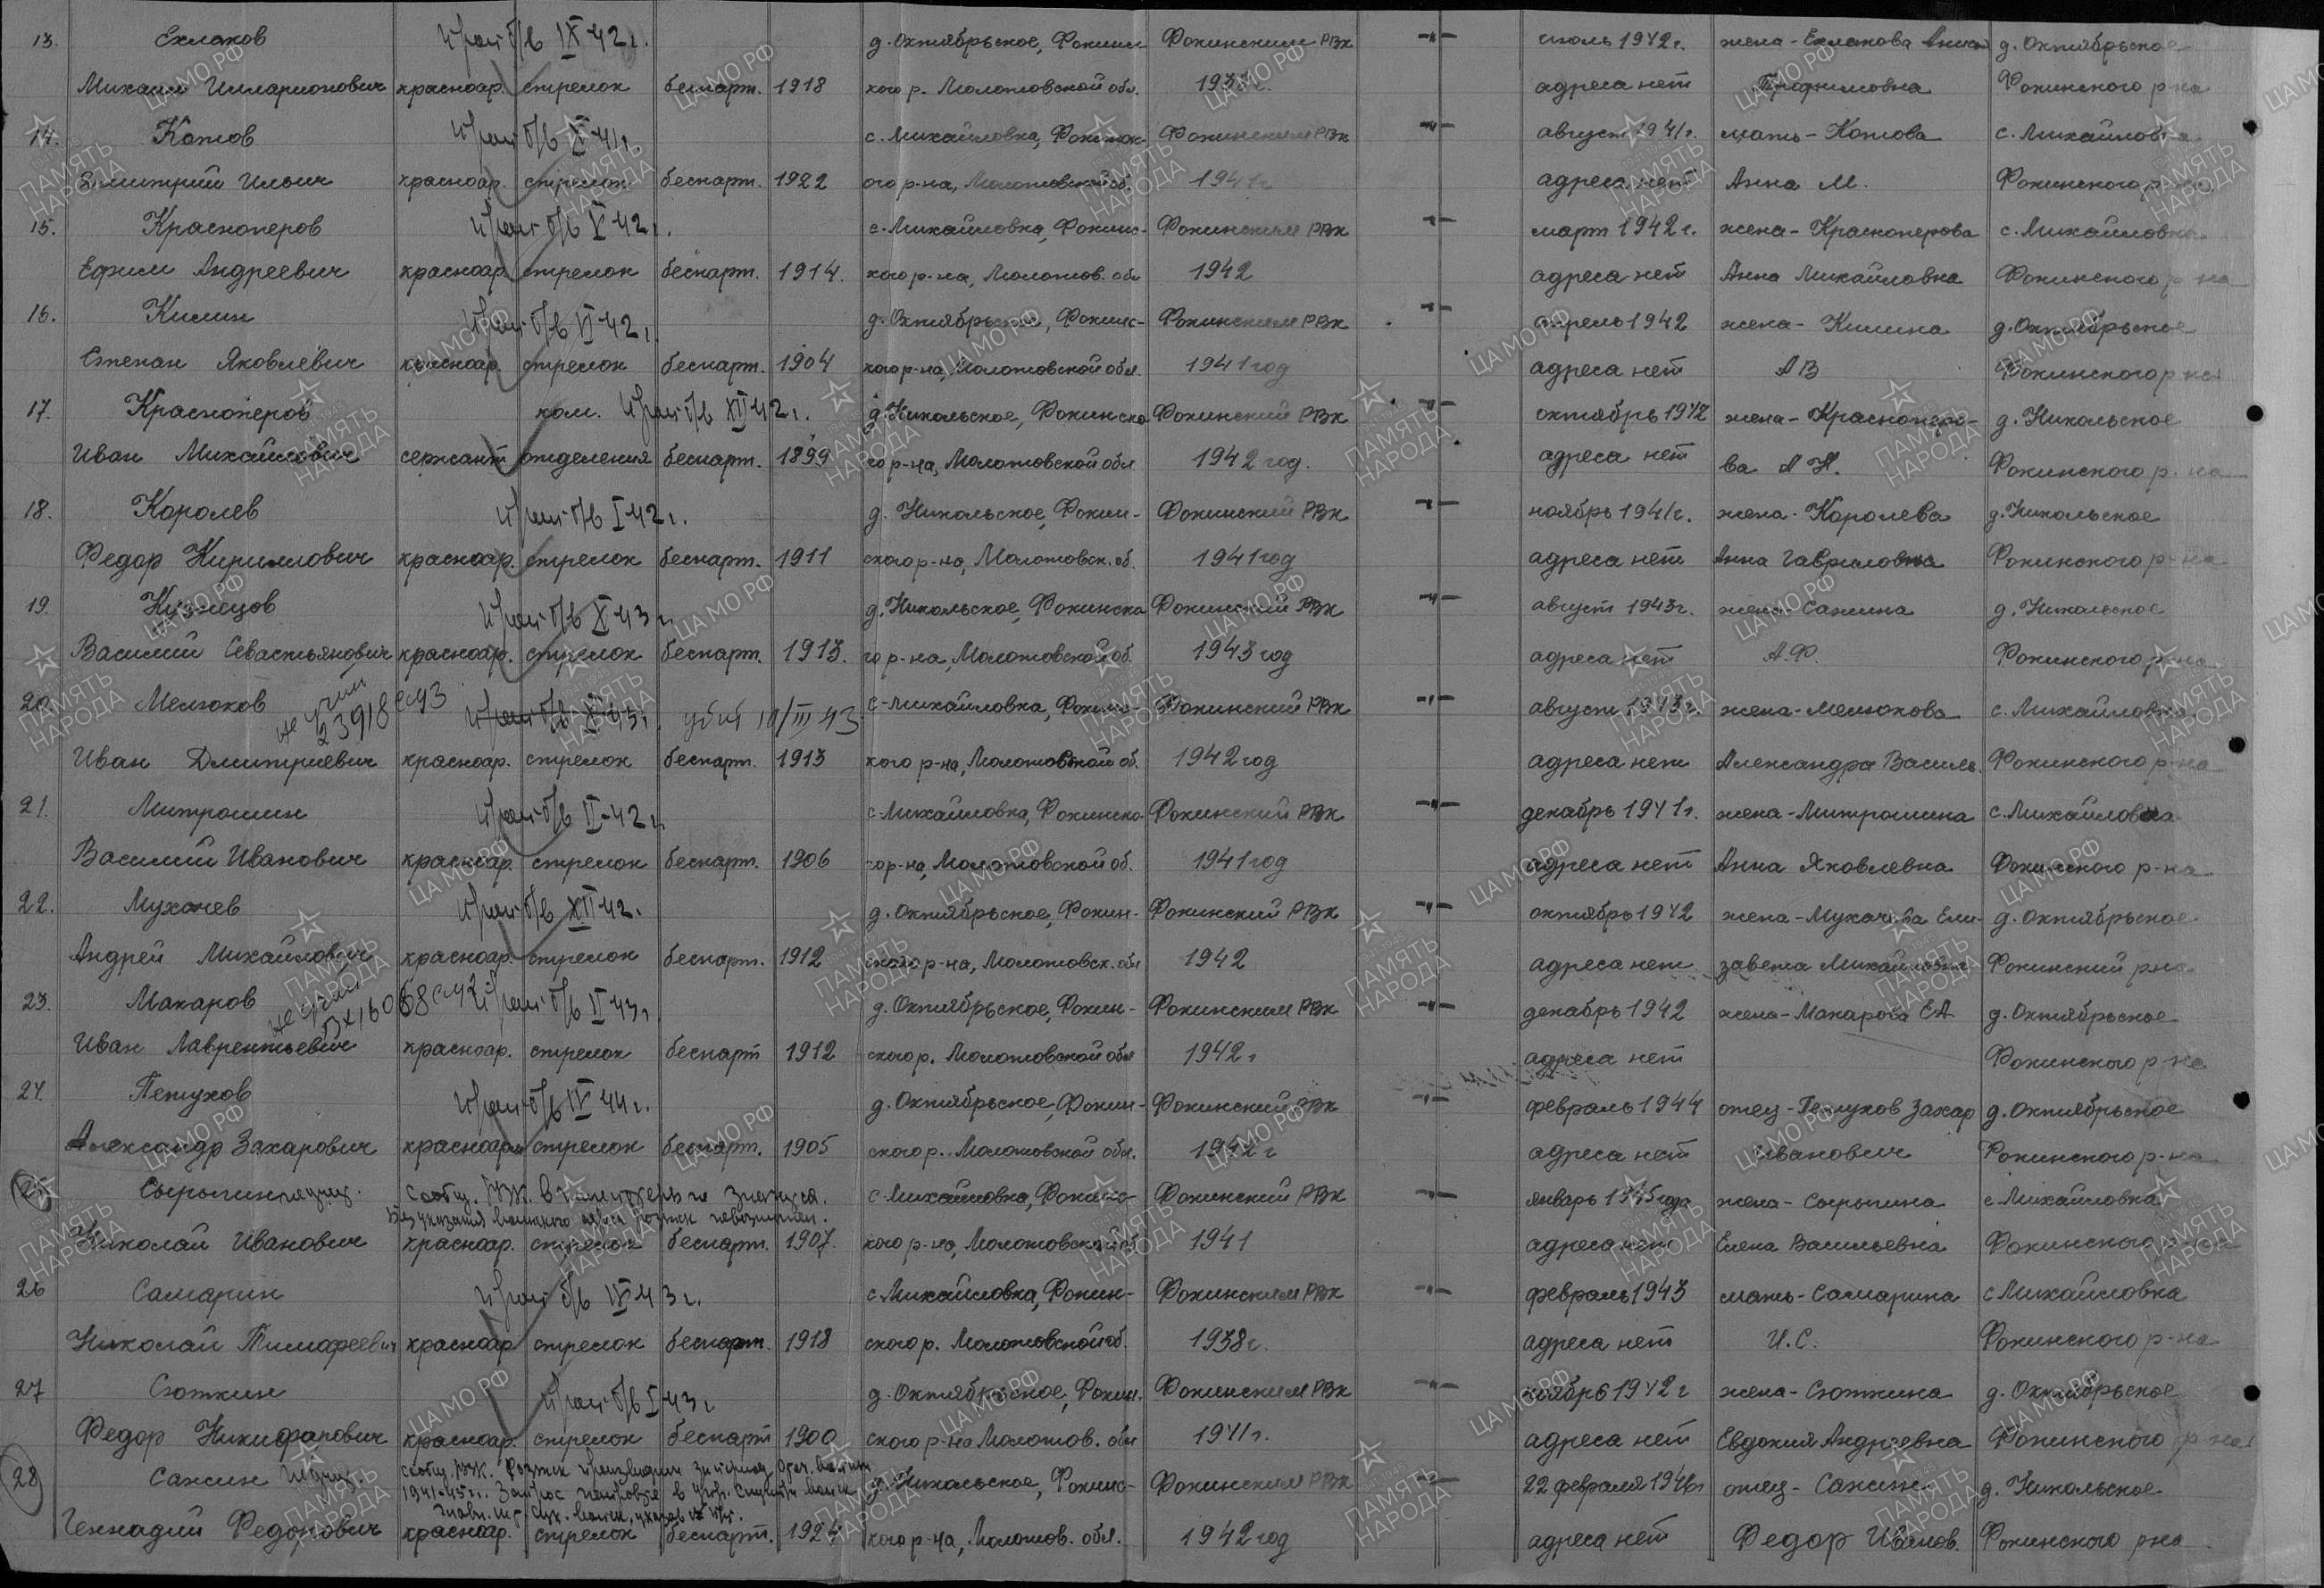 13. Ехлаков проп б/в IX-42 г. д. Октябрьское, Фокинс Фокинским РВк -"- июль 1942 г. жена - Ехлакова Анна д. Октябрьское
Михаил Илларионович красноар. стрелок беспарт. 1918 кого р. Молотовской обл. 1938 г. адреса нет Трофимовна Фокинского р-на
14. Котов проп б/в X-41 г. с. Михайловка, Фокинск- Фокинским РВк -"- август 1941 г. мать - Котова с. Михайловка
Дмитрий Ильич красноар. стрелок беспарт. 1922 ого р-на, Молотовской об. 1941 г. адреса нет Анна М. Фокинского р-на
15. Красноперов проп б/в V-42 г. с. Михайловка, Фокинс- Фокинским РВк -"- март 1942 г. жена - Красноперова с. Михайловка
Ефим Андреевич красноар. стрелок беспарт. 1914. кого р-на, Молотов. обл 1942 адреса нет Анна Михайловна Фокинского р-на
16. Килин проп б/в VI-42 г. д. Октябрьское, Фокинс- Фокинским РВк -"- апрель 1942 жена - Килина д. Октябрьское
Степан Яковлевич красноар. стрелок беспарт. 1904 кого р-на, Молотовской обл. 1941 год адреса нет АВ Фокинского р-на
17. Красноперов ком. проп б/в XII-42 г. д. Никольское, Фокинско Фокинский РВк -"- октябрь 1942 жена - Краснопёро- д. Никольское
Иван Михайлович сержант отделения беспарт. 1899 го р-на, Молотовской обл 1942 год. адреса нет ва А Н. Фокинского р-на
18. Королев проп б/в I-42 г. д. Никольское, Фокин- Фокинский РВк -"- ноябрь 1941 г. жена - Королева д. Никольское
Федор Кириллович красноар. стрелок беспарт. 1911 ского р-на, Молотовск. об. 1941 год адреса нет Анна Гавриловна Фокинского р-на
19. Кузнецов проп б/в X-43 г. д. Никольское, Фокинско Фокинский РВк -"- август 1943 г. жена - Сажина д. Никольское
Василий Севастьянович красноар. стрелок беспарт. 1913. го р-на, Молотовской об. 1943 год адреса нет А.Ф. Фокинского р-на
20. Мелюков не учит 23918 с 43 проп б/в X-43 г. убит 10/III 43 с. Михайловка, Фокинс- Фокинский РВк -"- август 1943 г. жена - Мелюкова с. Михайловка
Иван Дмитриевич красноар. стрелок беспарт. 1913 кого р-на, Молотовской об. 1942 год адреса нет Александра Василь. Фокинского р-на
21. Митрошин проп б/в II-42 г. с. Михайловка, Фокинско- Фокинский РВк -"- декабрь 1941 г. жена - Митрошина с. Михайловка
Василий Иванович красноар. стрелок беспарт. 1906 го р-на, Молотовской об. 1941 год адреса нет Анна Яковлевна Фокинского р-на
22. Мухачев проп б/в XII-42. д. Октябрьское, Фокин- Фокинский РВк -"- октябрь 1942 жена - Мухачева Ели- д. Октябрьское
Андрей Михайлович красноар. стрелок беспарт. 1912 ского р-на, Молотовск. обл 1942 адреса нет завета Михайловна Фокинский р-на
23. Макаров не учит Вх 16058 с 42 проп б/в II-43 г. д. Октябрьское, Фокин- Фокинским РВк -"- декабрь 1942 жена - Макарова ЕА д. Октябрьское
Иван Лаврентьевич красноар. стрелок беспарт 1912 ского р. Молотовской обл 1942 г адреса нет Фокинского р-на
24. Петухов проп б/в IV 44 г. д. Октябрьское, Фокин- Фокинский РВк -"- февраль 1944 отец - Петухов Захар д. Октябрьское
Александр Захарович красноарм стрелок беспарт. 1905 ского р. Молотовской обл. 1942 г адреса нет Иванович Фокинского р-на
25 Сырыгин не учт. сообщ. РВК. в с. Михайловка, Фокинс- Фокинский РВк -"- январь 1945 года жена - Сырыгина с. Михайловка
Без указания воинского адреса розыск невозможен.
Николай Иванович красноар. стрелок беспарт. 1907. кого р-на, Молотовской об 1941 адреса нет Елена Васильевна Фокинского р-на
26 Самарин проп б/в IV-43 г. с. Михайловка, Фокин- Фокинским РВк -"- февраль 1943 мать - Самарина с Михайловка
Николай Тимофеевич красноар стрелок беспарт. 1918 ского р. Молотовской об. 1938 г. адреса нет И.С. Фокинского р-на
27 Сюткин проп б/в I-43 г д. Октябрьское, Фокин. Фокинским РВк -"- ноябрь 1942 г жена - Сюткина д. Октябрьское
Федор Никифорович красноар. стрелок беспарт 1900 ского р-на Молотов. обл 1941 г. адреса нет Евдокия Андреевна Фокинского р-на
28 Сажин не учт. сообщ. РВК. Розыск производим за период Отеч. войны д. Никольское, Фокинс- Фокинским РВк -"- 22 февраля 1946 г отец - Сажин д. Никольское
1941-45 г.
Геннадий Федорович красноар. стрелок беспарт. 1924 кого р-на, Молотов. обл. 1942 год адреса нет Федор Иванов. Фокинского р-на
ЦА МО РФ
ПАМЯТЬ НАРОДА